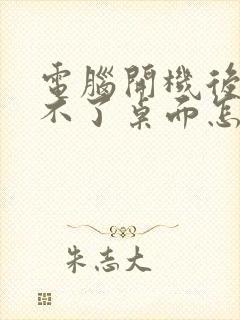 電腦開機後
不了桌面怎
朱志大